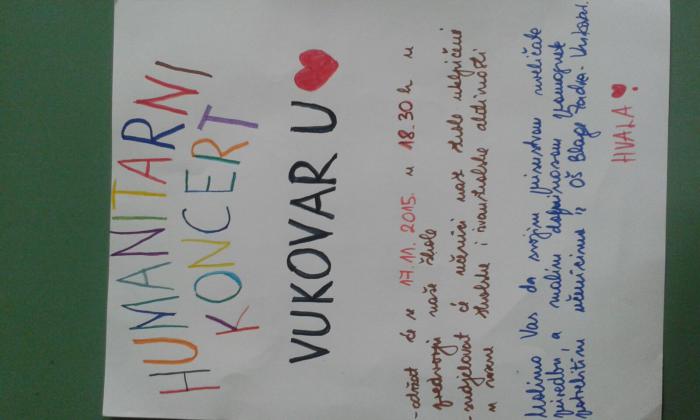 HUMANITARNI
KONCERT
VUKOVAR U
- održat će se 17.11.2015. u 18.30h u
predvorju naše škole
- sudjelovat će učenici naše škole uključeni
u razne školske i izvanškolske aktivnosti
Molimo Vas da svojim prisustvom uveličate
priredbu, a malim doprinosom pomognete
potrebitim učenicima iz OŠ Blage Zadre, Vukovar.
HVALA